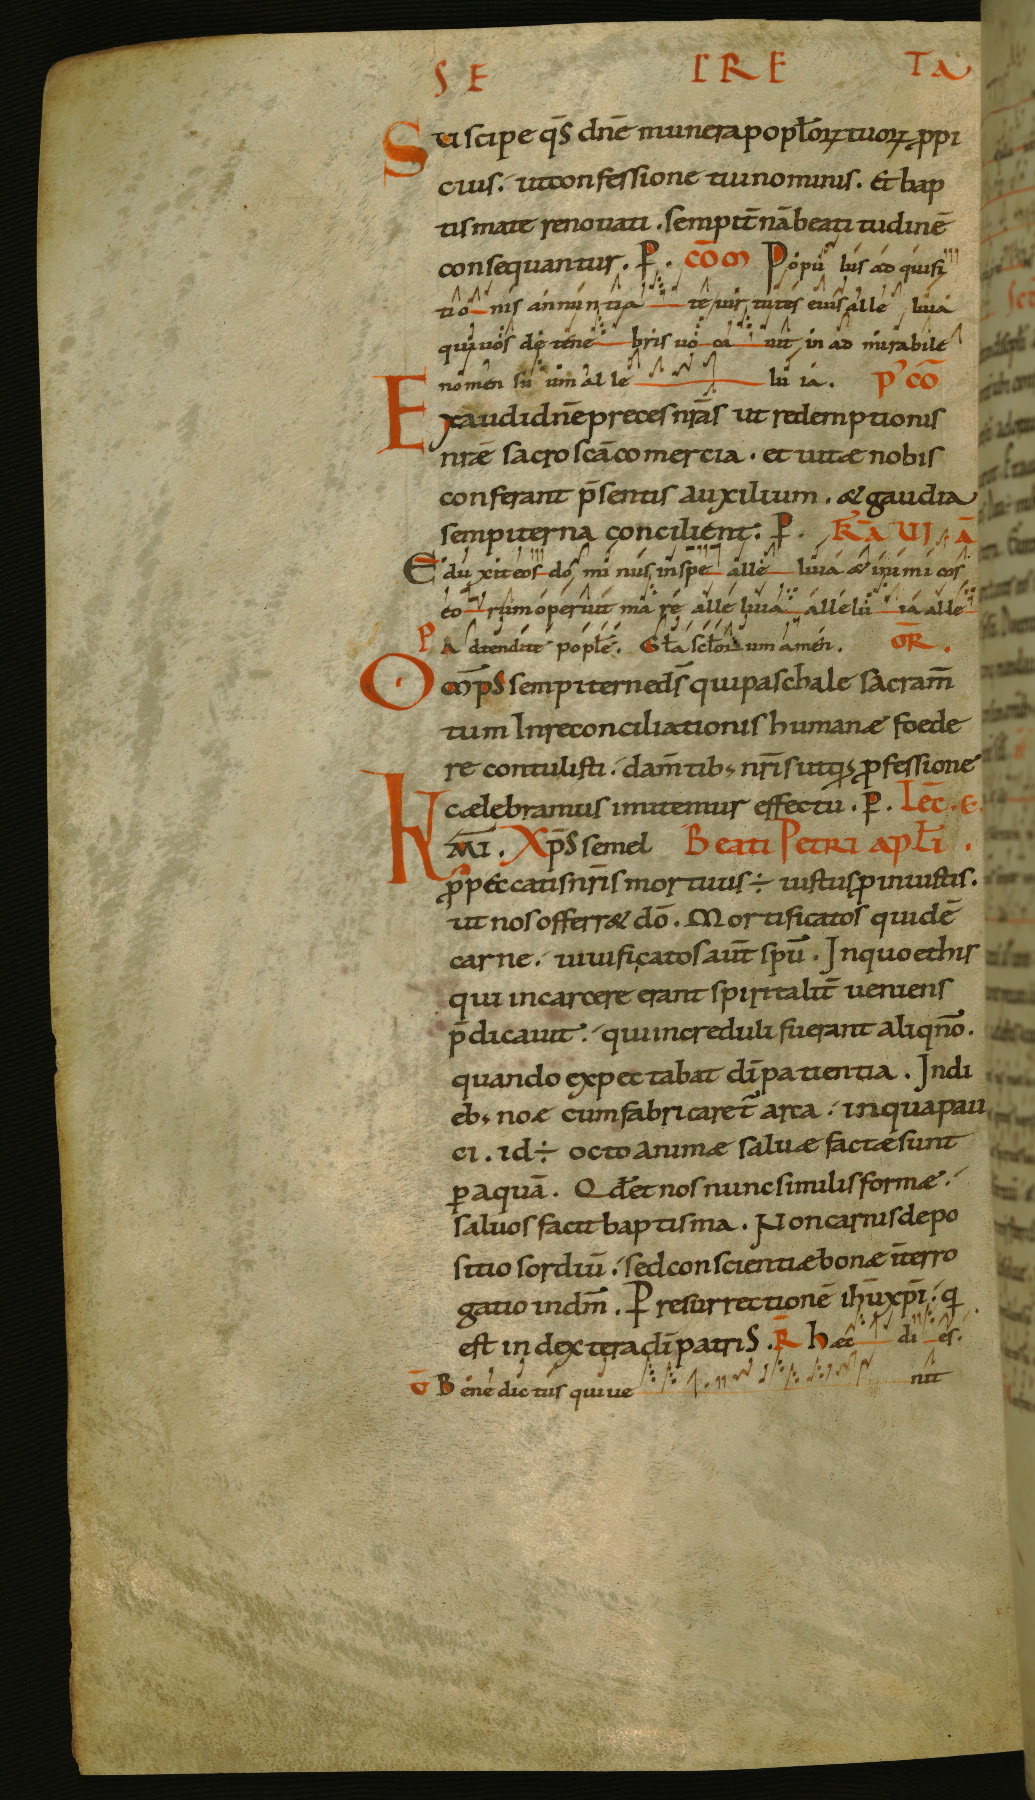 SE CRE TA
Suscipe qs dnē munera popłoꝝ tuoꝝ ꝓpi
cius. ut confessione tui nominis. Et bap
tismate renouati. sempit̄nā beatitudinē
consequantur. P. cōm Populus ad quisi
tionis annuntia te uirtutes eius alle luia
qui uos de tene bris uo ca uit in ad mirabile
nomen su um al le lu ia. P' cō
Exaudi dnē preces nrās ut redemptionis
nrāe sacroscā comercia. et uitæ nobis
conferant p̄sentis auxilium. & gaudia
sempiterna concilient. P. FR̄ A UI A
Eduxit eos dominus in spe alle luia & inimicos
eorum operuit ma re alle luia alle lu ia alle
P Adtendite popłe. Gła scłorum amen. OR̄.
Om̄ps sempiterne ds̄ qui paschale sacram̄
tum In reconciliationis humanæ foede
re contulisti. dam̄tib; nr̄is ut q̄s ꝓfessione
cælebramus imitemur effectu. P. Lec̄. E.
Km̄i. Xp̄s semel Beati Petri apłi.
ꝓ peccatis nr̄is mortuus ÷ iustus ꝓ iniustis.
ut nos offerr& dō. Mortificatos quidē
carne. uiuificatos aut̄ spū. In quo et his
qui in carcere erant spiritalit̄ ueniens
p̄dicauit. qui increduli fuerant aliqn̄o.
quando expectabat dī patientia. In di
eb; noæ cum fabricaret̄ arca. in qua pau
ci. id ÷ octo animæ saluæ factæ sunt
ꝑ aquā. Qd̄ et nos nunc similis formæ.
saluos facit baptisma. Non carnis depo
sitio sordiū. sed conscientiæ bonæ īterro
gatio in dm̄. P resurrectionē ihū xpī. q
est in dextera dī patris. R̄ Haec di es.
V̄ Bene dic tus qui ue nit